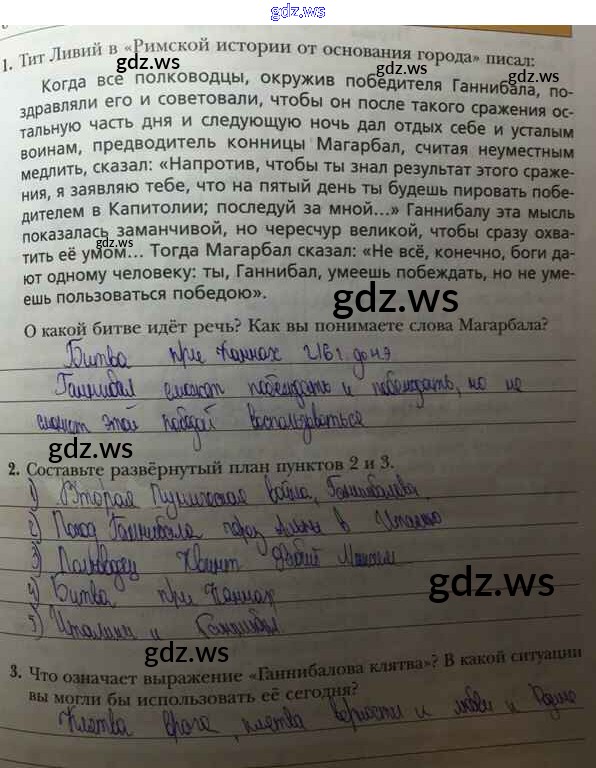 gdz.ws
1. Тит Ливий в «Римской истории от основания города» писал:
Когда все полководцы, окружив победителя Ганнибала, по-
gdz.ws
здравляли его и советовали, чтобы он после такого сражения ос-
тальную часть дня и следующую ночь дал отдых себе и усталым
воинам, предводитель конницы Магарбал, считая неуместным
медлить, сказал: «Напротив, чтобы ты знал результат этого сраже-
ния, я заявляю тебе, что на пятый день ты будешь пировать побе-
дителем в Капитолии; последуй за мной...» Ганнибалу эта мысль
показалась заманчивой, но чересчур великой, чтобы сразу охва-
gdz.ws
тить её умом... Тогда Магарбал сказал: «Не всё, конечно, боги да-
ют одному человеку: ты, Ганнибал, умеешь побеждать, но не уме-
ешь пользоваться победою».
gdz.ws
О какой битве идёт речь? Как вы понимаете слова Магарбала?
Битва при Каннах 216 г. до нэ
Ганнибал сможет побеждать и побеждать, но не
сможет этой победой воспользоваться
gdz.ws
2. Составьте развёрнутый план пунктов 2 и 3.
1) Вторая Пуническая война, Ганнибалова.
2) Поход Ганнибала через Альпы в Италию
3) Полководец Квинт Фабий Максим
gdz.ws
4) Битва при Каннах
5) Италики и Ганнибал.
gdz.ws
3. Что означает выражение «Ганнибалова клятва»? В какой ситуации
вы могли бы использовать её сегодня?
Клятва врага, клятва верности и любви к Родине
gdz.ws